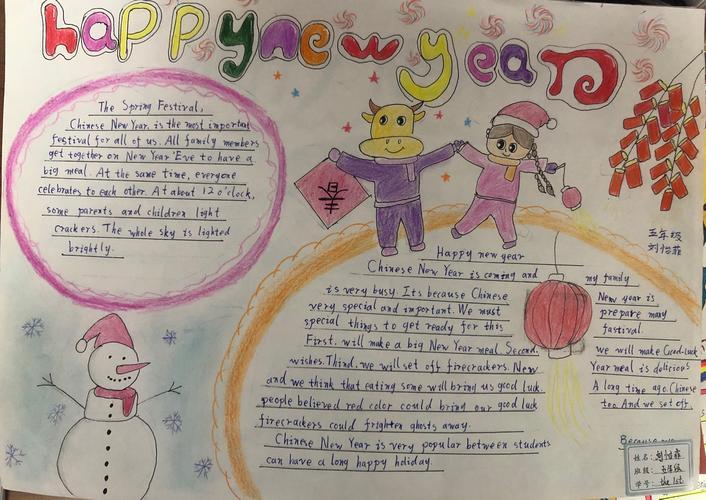 happy new year
The Spring Festival,
Chinese New Year, is the most important
festival for all of us. All family members
get together on New Year Eve to have a
big meal. At the same time, everyone
celebrates to each other. At about 12 o'clock,
some parents and children light
crackers. The whole sky is lighted
brightly.
五年级
刘怡菲
Happy new year
Chinese New Year is coming and my family
is very busy. Its because Chinese New year is
very special and important. We must prepare many
special things to get ready for this fastival.
First, will make a big New Year meal. Second, we will make Good-luck
wishes. Third, we will set off firecrackers. New Year meal is delicious
and we think that eating some will bring us good luck. A long time ago. Chinese
people believed red color could bring our good luck too. And we set off
firecrackers could frighten ghosts away.
Because
Chinese New Year is very popular between students
can have a long happy holiday.
姓名: 刘怡菲
班级: 五年级
学号: the 1st